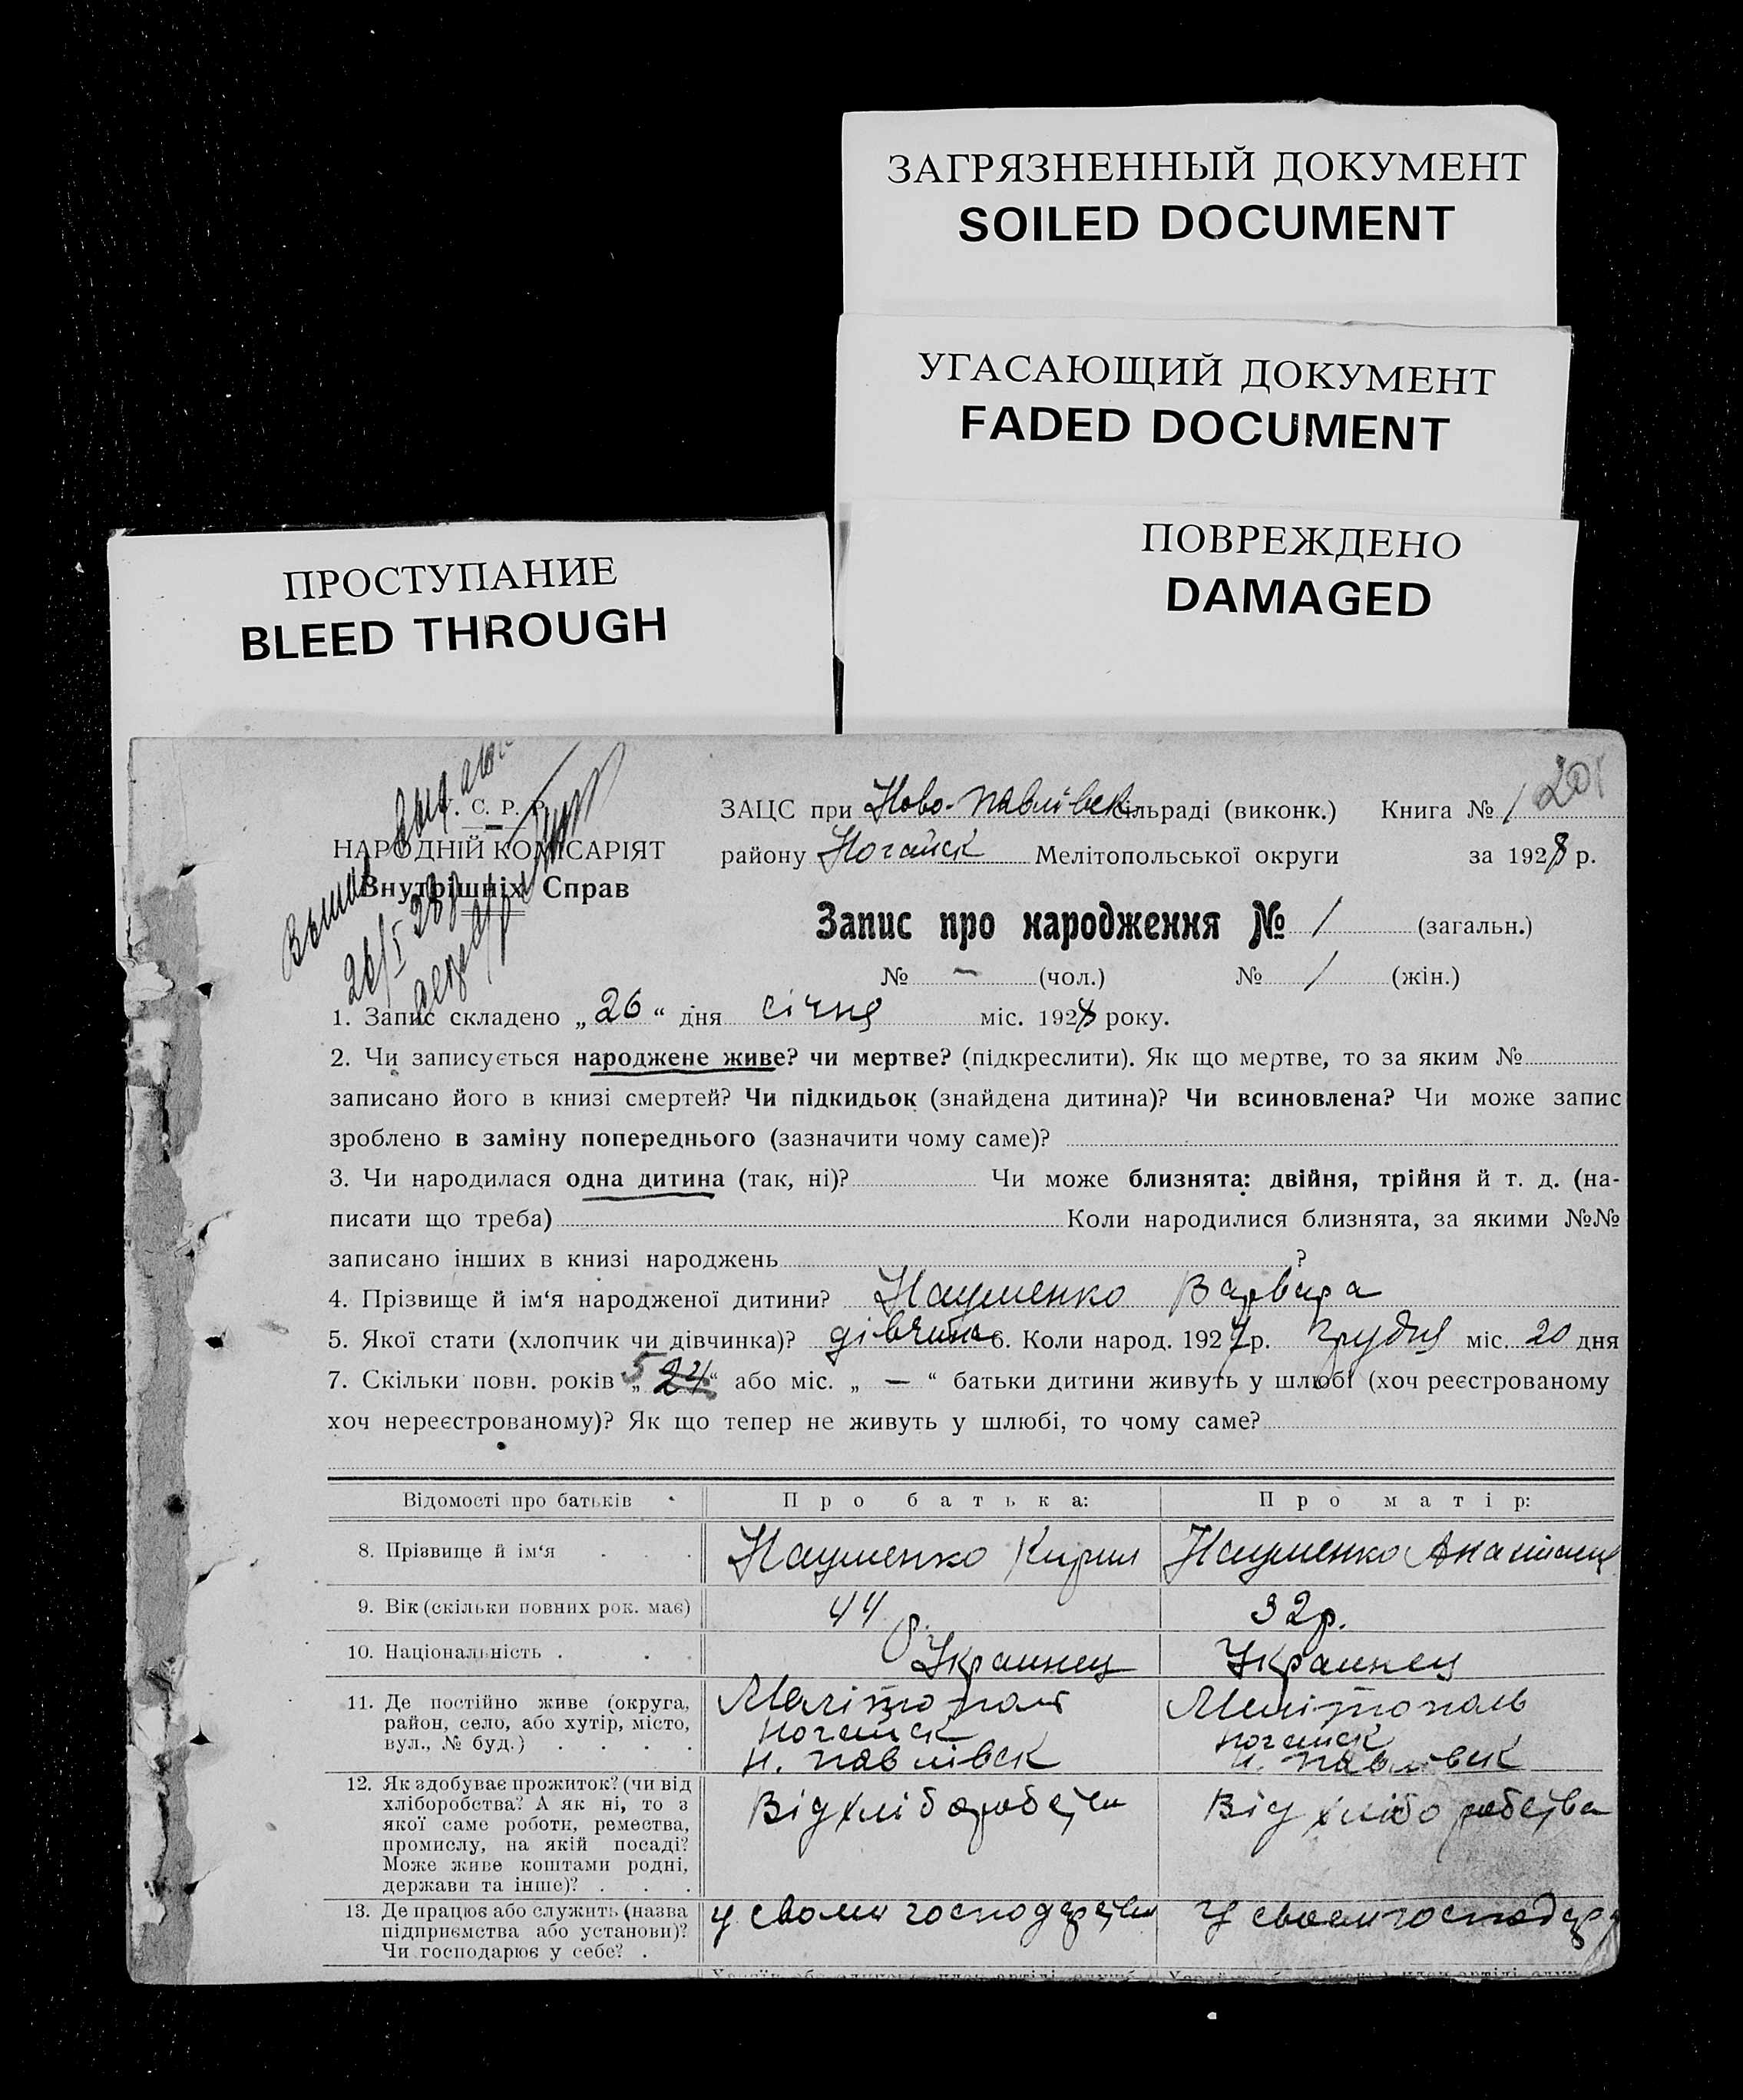 ЗАГРЯЗНЕННЫЙ ДОКУМЕНТ
SOILED DOCUMENT
УГАСАЮЩИЙ ДОКУМЕНТ
FADED DOCUMENT
ПОВРЕЖДЕНО
DAMAGED
ПРОСТУПАНИЕ
BLEED THROUGH
201
С. Р. Р.
НАРОДНІЙ КОМІСАРІЯТ
Внутрішніх Справ
26/I 28
ЗАЦС при Ново-Павлівск сільраді (виконк.) Книга № 1
району Ногайск Мелітопольської округи за 1928 р.
Запис про народження № 1 (загальн.)
№ – (чол.) № 1 (жін.)
1. Запис складено „26“ дня січня міс. 1928 року.
2. Чи записується народжене живе? чи мертве? (підкреслити). Як що мертве, то за яким №
записано його в книзі смертей? Чи підкидьок (знайдена дитина)? Чи всиновлена? Чи може запис
зроблено в заміну попереднього (зазначити чому саме)?
3. Чи народилася одна дитина (так, ні)? Чи може близнята: двійня, трійня й т. д. (на-
писати що треба) Коли народилися близнята, за якими №№
записано інших в книзі народжень ?
4. Прізвище й ім‘я народженої дитини? Науменко Варвара
5. Якої стати (хлопчик чи дівчинка)? дівчина 6. Коли народ. 1927 р. Грудня міс. 20 дня
7. Скільки повн. років „5 24“ або міс. „ — “ батьки дитини живуть у шлюбі (хоч реєстрованому
хоч нереєстрованому)? Як що тепер не живуть у шлюбі, то чому саме?
Відомості про батьків Про батька: Про матір:
8. Прізвище й ім‘я . . . Науменко Кирил Науменко
9. Вік (скільки повних рок. має) 44 р. 32 р.
10. Національність . . . Украинец Украинец
11. Де постійно живе (округа,
район, село, або хутір, місто,
вул., № буд.) . . . .
Мелітополь
Ногайск
Н. Павлівск
Мелітополь
Ногайск
Н. Павлівск
12. Як здобуває прожиток? (чи від
хліборобства? А як ні, то з
якої саме роботи, ремества,
промислу, на якій посаді?
Може живе коштами родні,
держави та інше)? . . .
Від хліборобства
Від хлібо робства
13. Де працює або служить (назва
підприємства або установи)?
Чи господарює у себе? .
у своем господарстви
у своем господар